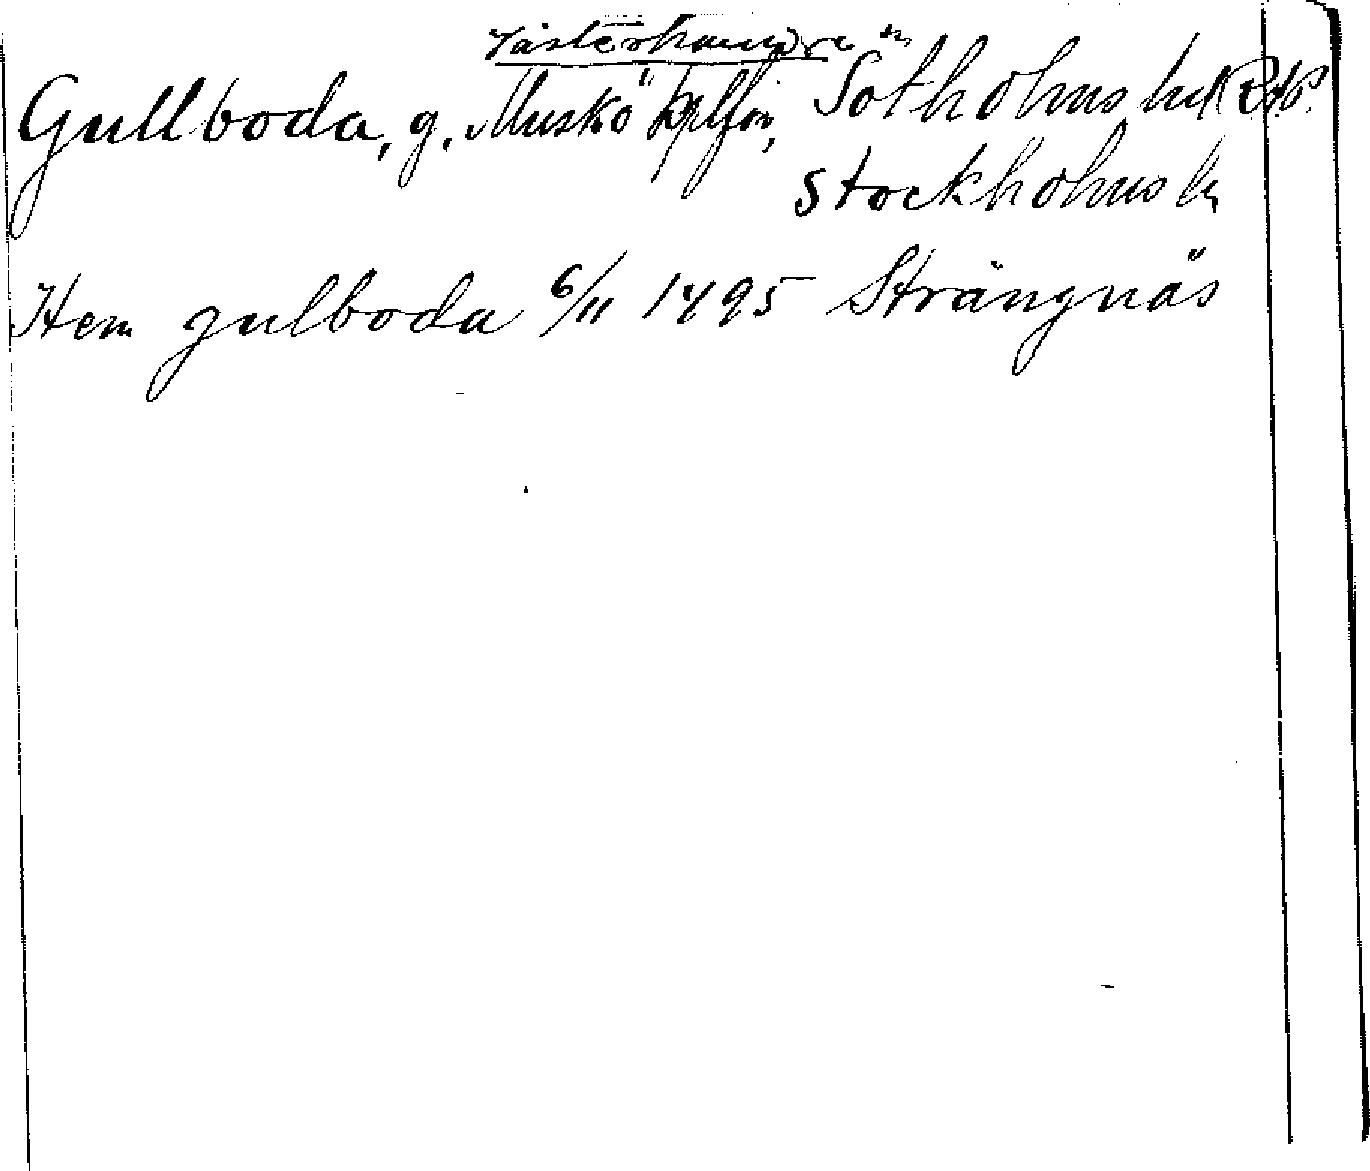 Västerhaninge
Gullboda, g. Muskö kplfŕs, Sotholms hd
Stockholms l.
Item gulboda 6/11 1495 Strängnäs